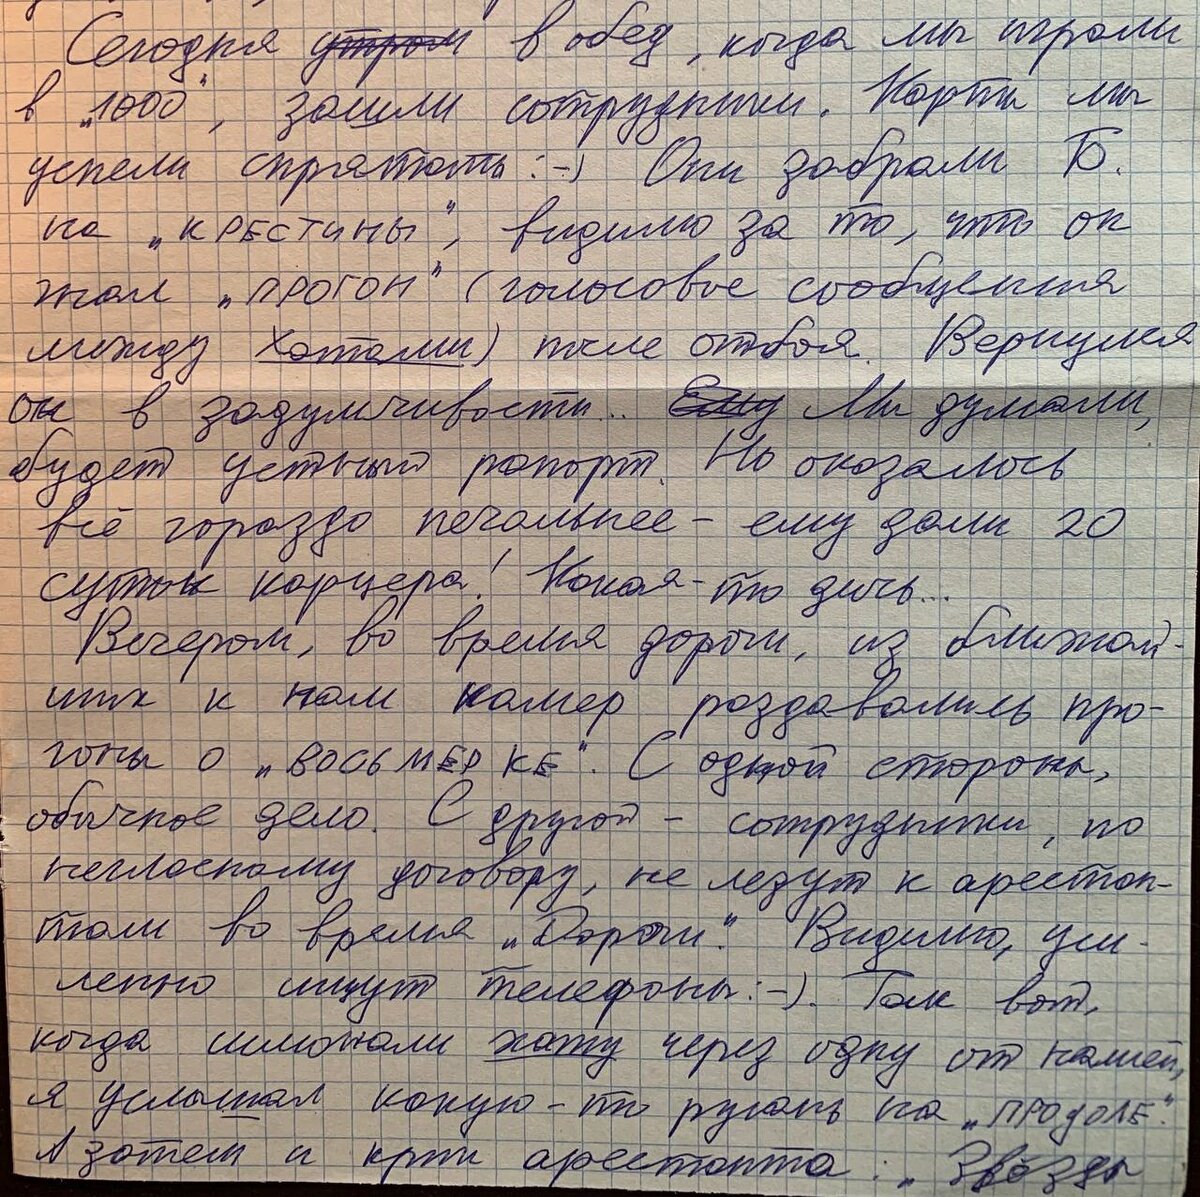 Сегодня утром в обед, когда мы играли
в „1000“, зашли сотрудники. Карты мы
успели спрятать :-) Они забрали Б.
на „КРЕСТИНЫ“, видимо за то, что он
жал „ПРОГОН“ (голосовые сообщения
между хатами) после отбоя. Вернулся
он в задумчивости... Ему Мы думали,
будет устный рапорт. Но оказалось
всё гораздо печальнее – ему дали 20
суток карцера! Какая-то дичь...
Вечером, во время дороги, из ближай-
ших к нам камер раздавались про-
гоны о „ВОСЬМЕРКЕ“. С одной стороны,
обычное дело. С другой – сотрудники, по
негласному договору, не лезут к арестан-
там во время „Дороги“. Видимо, уси-
ленно ищут телефоны :-). Так вот,
когда шмонали хату через одну от нашей,
я услышал какую-то ругань на „ПРОДОЛЕ“.
А затем и крик арестанта: „Звёзды